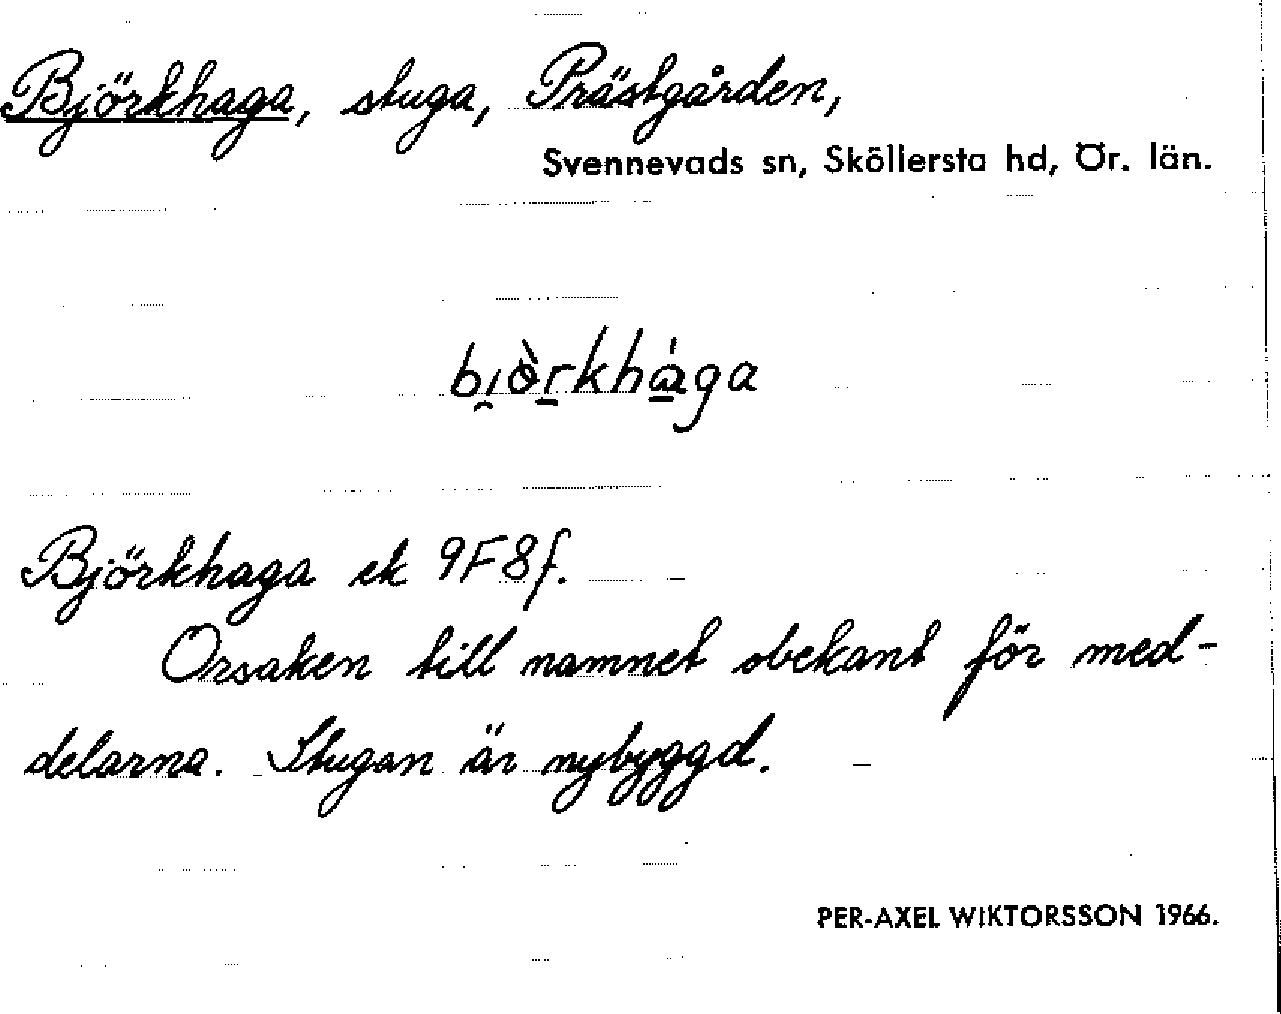 Björkhaga, stuga, Prästgården,
Svennevads sn, Sköllersta hd, Ör. län.
bi̯ὸ̱rkhága
Björkhaga ek 9F8f.
Orsaken till namnet obekant för med-
delarna. Stugan är nybyggd.
PER-AXEL WIKTORSSON 1966.